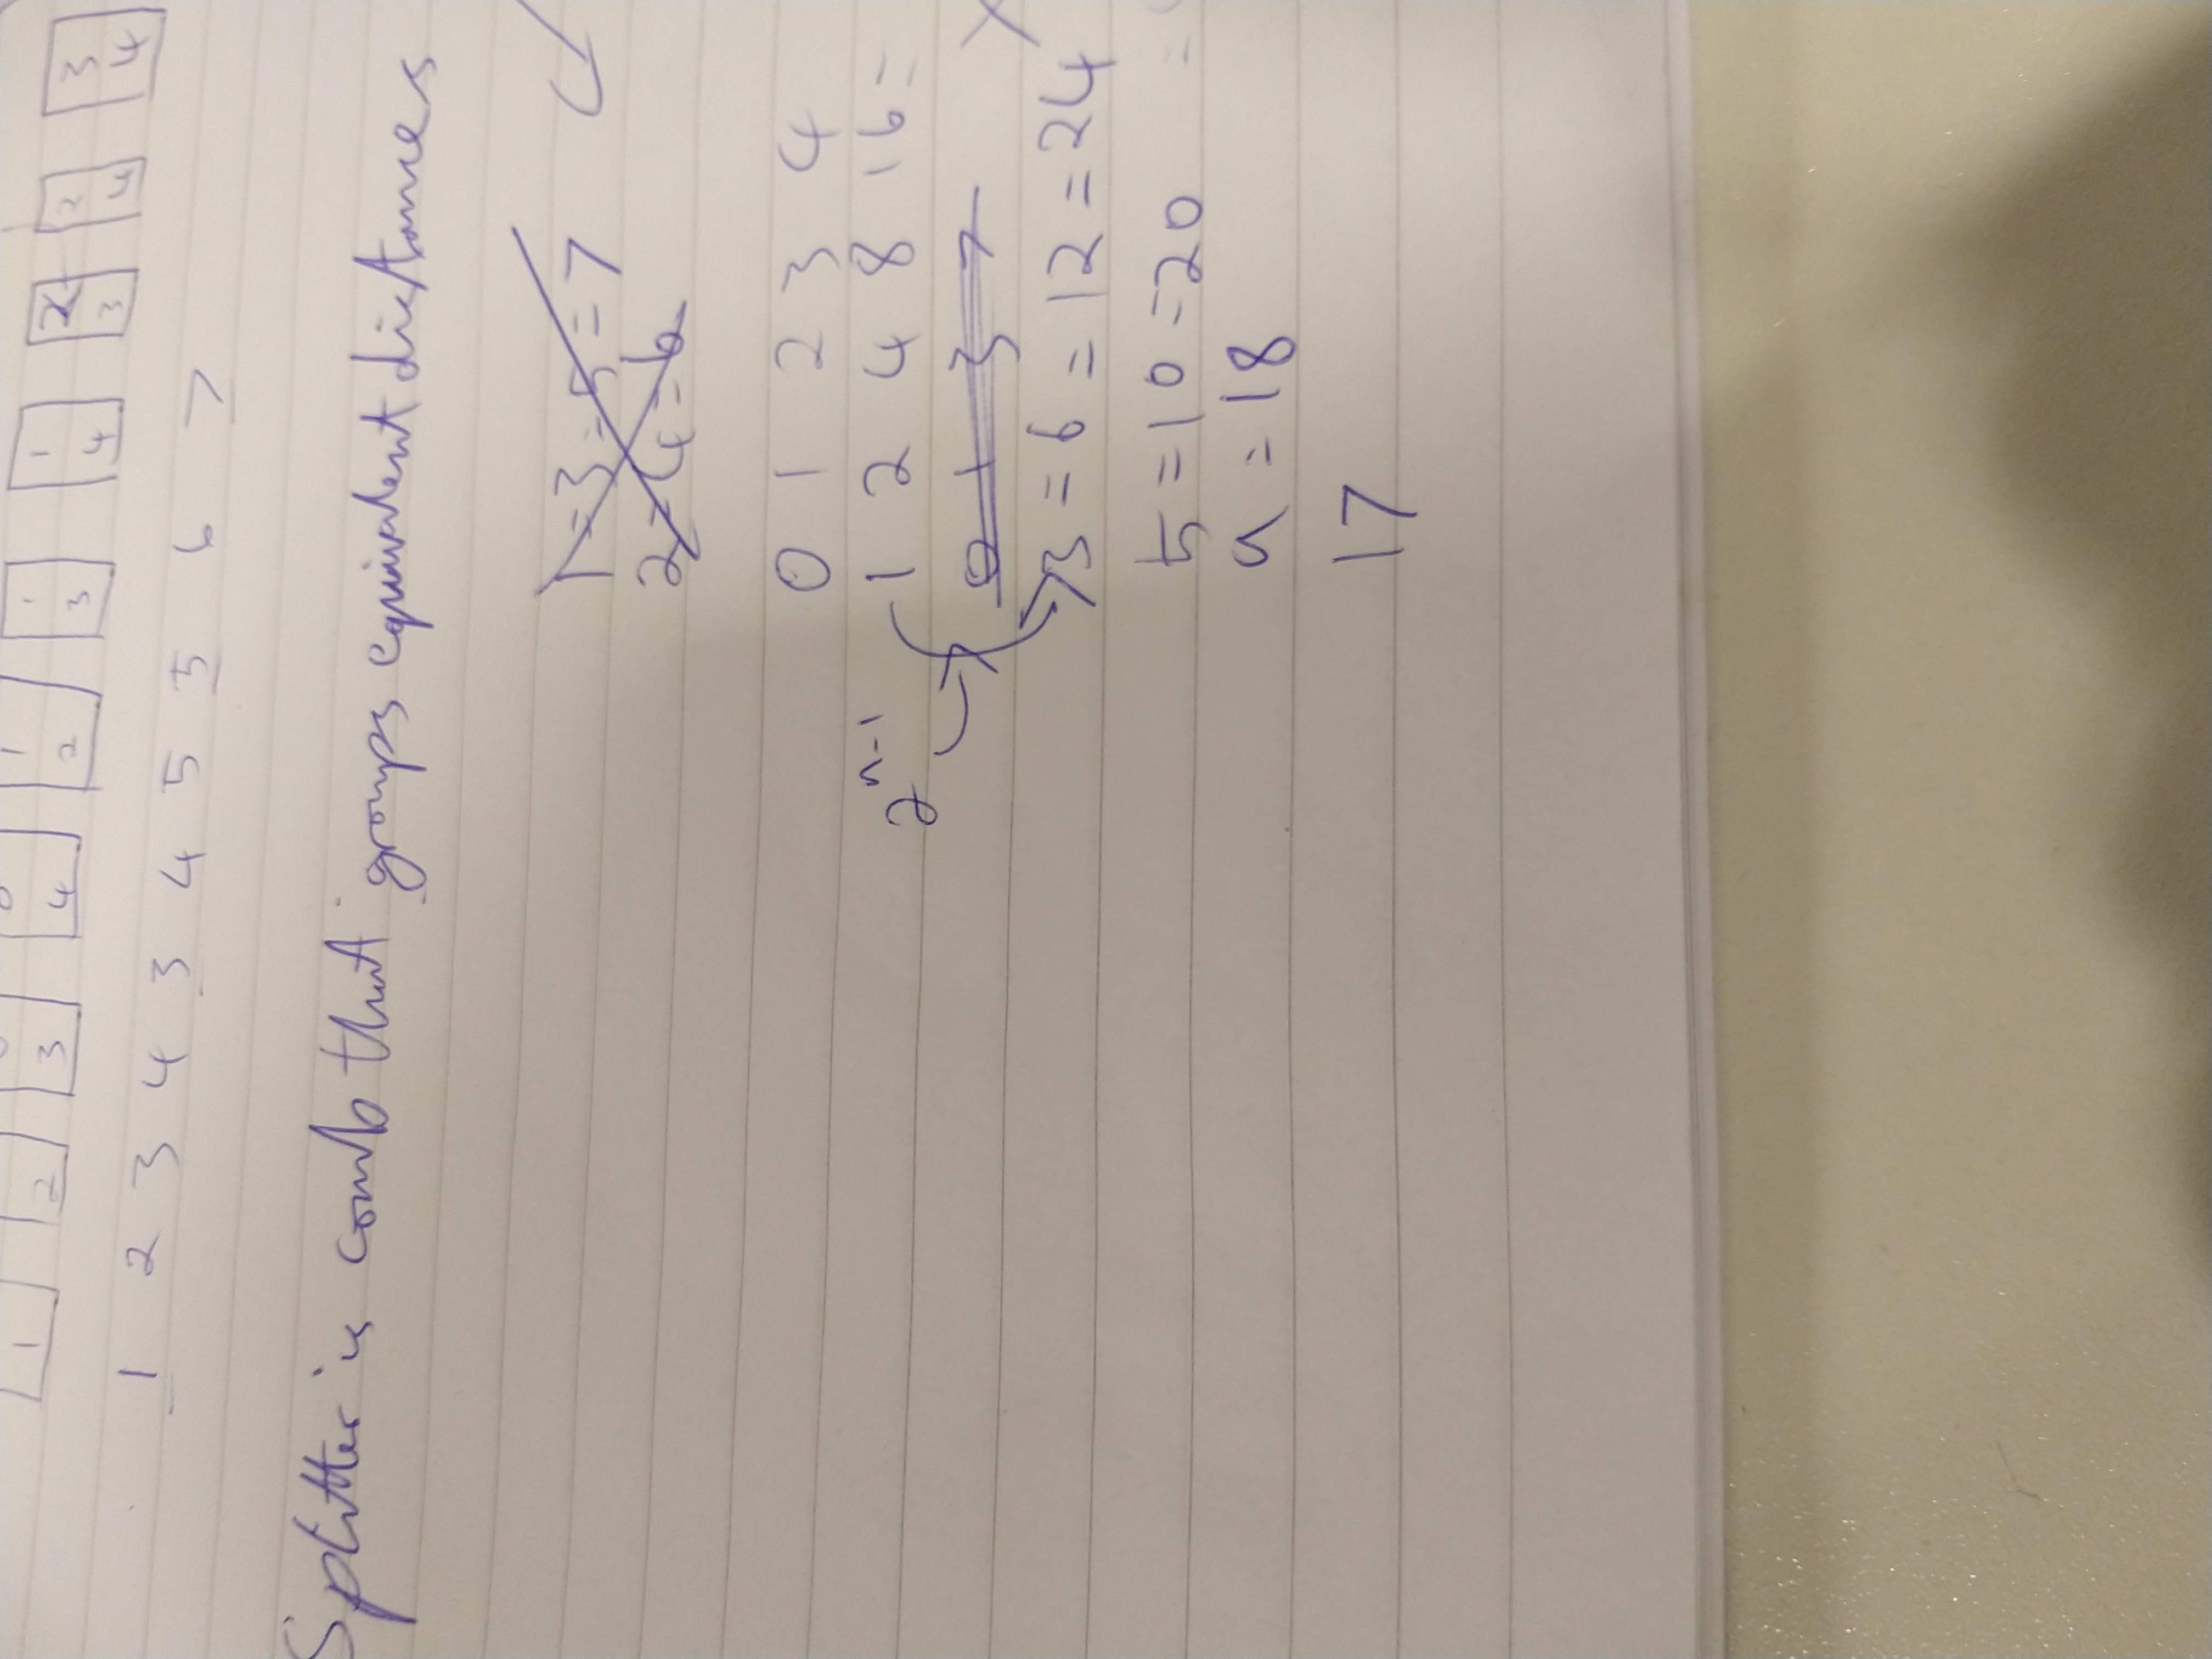 1 2 3 4 2 3 4 3 4 4
1 1 1 2 2 3
1 2 3 4 3 4 5 5 6 7
Splitter is comb that groups equivalent distances
1=3=5=7
2=4=6
0 1 2 3 4
2^n-1 1 2 4 8 16=
0 1 3 7
3=6=12=24
5=10=20 =
9=18
17